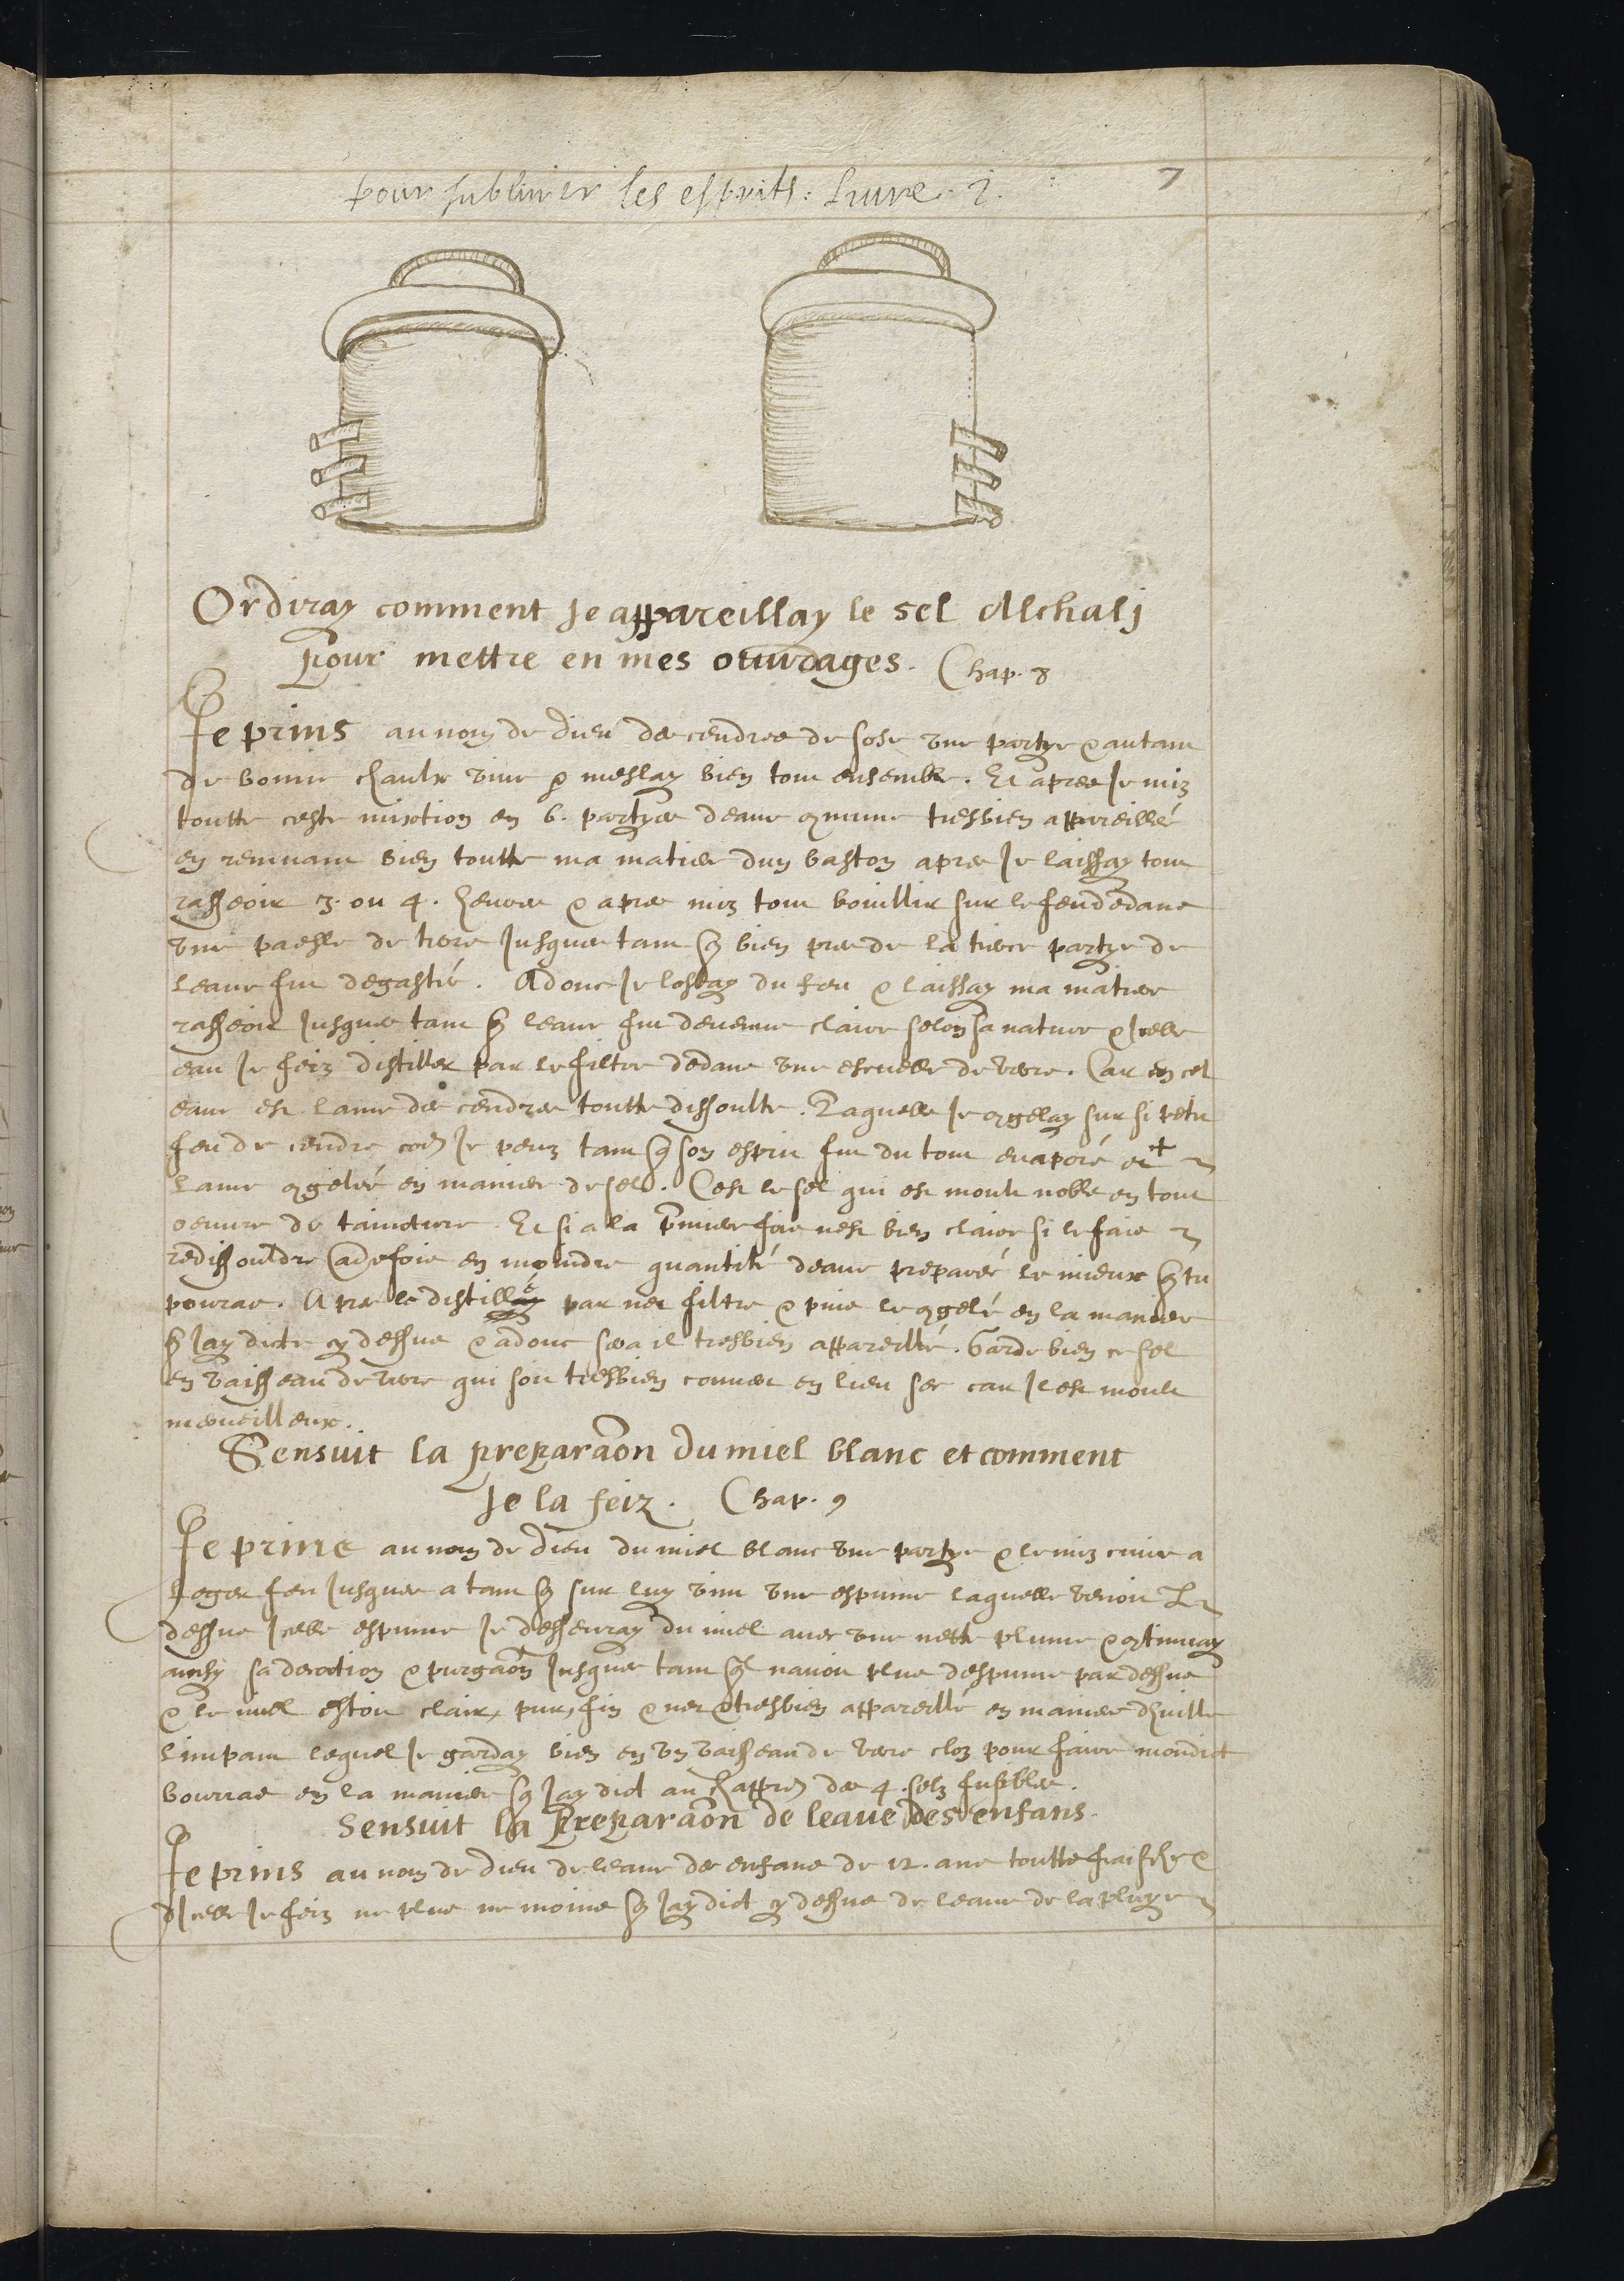 Pour sublimer les esprits : Livre . 2. 7
Or diray comment Je appareillay le sel Alchalj
Pour mettre en mes ouurages . Chap . 8
Je prins au nom de dieu des cendres de sose vne partye & autant
de bonne chaulx viue & meslay bien tout ensemble . Et apres Je mis
toutte ceste mixtion en 6 . partyes deaue 9mune tresbien appareillé
en remuant bien toutte ma matiere dun baston apres Je laissay tout
rasseoir 3 . ou 4 . heures & apres mis tout bouillir sur le feu dedans
vne paesle de terre Jusques a tant q̃ bien pres de la tierce partye de
leaue fut degastée . Adonc Je lostay du feu & laissay ma matiere
rasseoir Jusques tant q̃ leaue fut deuenue claire selon sa nature & Jcelle
eau Je feiz distiller par le filtre dedans vne escuelle de verre . Car en cel
eaue est lame des cendres toutte dissoulte . Laquelle Je 9gelay sur si petit
feu de cendre cõe Je peuz tant q̃ son esprit fut du tout euaporé et +
lame 9gelée en maniere de sel . Cest le sel qui est moult noble en tout
oeuure de tainture . Et si a la p̃miere fois nest bien claire si le fais
redissouldre aũe fois en moindre quantité deaue preparée le mieux q̃ tu
pouras . Apres le distillé par net filtre & puis le 9gelé en la maniere
q̃ Jay dicte cy dessus & adonc sera il tresbien appareillé . Garde bien ce sel
en vaisseau de verre qui soit tresbien couuert en lieu sec car Il est moult
merueilleux .
Sensuit la preparaõn du miel blanc et comment
Je la feiz . Chap . 9
Je prins au nom de dieu du miel blanc vne partye & le mis cuire a
leger feu Jusques a tant q̃ sur luy vint vne espume laquelle venoit
dessus Jcelle espume Je desseuray du miel auec vne nette plume & 9tinuay
ainsy sa decoction & purgaõn Jusques tant q̃l nauoit plus despume par dessus
& le miel estoit clair, pur, fin & net & tresbien appareillé en maniere dhuille
limpant lequel Je garday bien en vn vaisseau de verre clos pour faire mondict
bourras en la maniere q̃ Jay dict au chappre des 4 . selz fusibles .
Sensuit la Preparaõn de leaue des enfans .
Je prins au nom de dieu de leaue des enfans de 12 . ans toutte fraische &
dJcelle Je feiz ne plus ne moins q̃ Jay dict cy dessus de leaue de la pluye